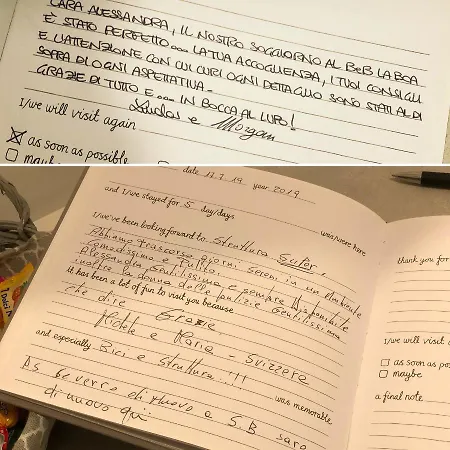 CARA ALESSANDRA, IL NOSTRO SOGGIORNO AL B&B LA BOA
È STATO PERFETTO.... LA TUA ACCOGLIENZA, I TUOI CONSIGLI
E L'ATTENZIONE CON CUI CURI OGNI DETTAGLIO SONO STATI AL DI
SOPRA DI OGNI ASPETTATIVA.
GRAZIE DI TUTTO E.... IN BOCCA AL LUPO!
e Morgan
I/we will visit again
as soon as possible
maybe
date 17.7.19 year 2019
was/were here
and I/we stayed for 5 day/days
I/we've been looking forward to Struttura Super,
Abbiamo trascorso giorni sereni in un Ambiente
Comodissimo e Pulito.
Alessandra Gentilissima e sempre disponibile
inoltre la donna delle pulizie Gentilissima
it has been a lot of fun to visit you because
che dire Grazie
Maria - Svizzera
and especially Bici e Struttura...!!!
was memorable
di nuovo e S.B sarò
di nuovo qui
thank you for
I/we will visit
as soon as pos
maybe
a final note